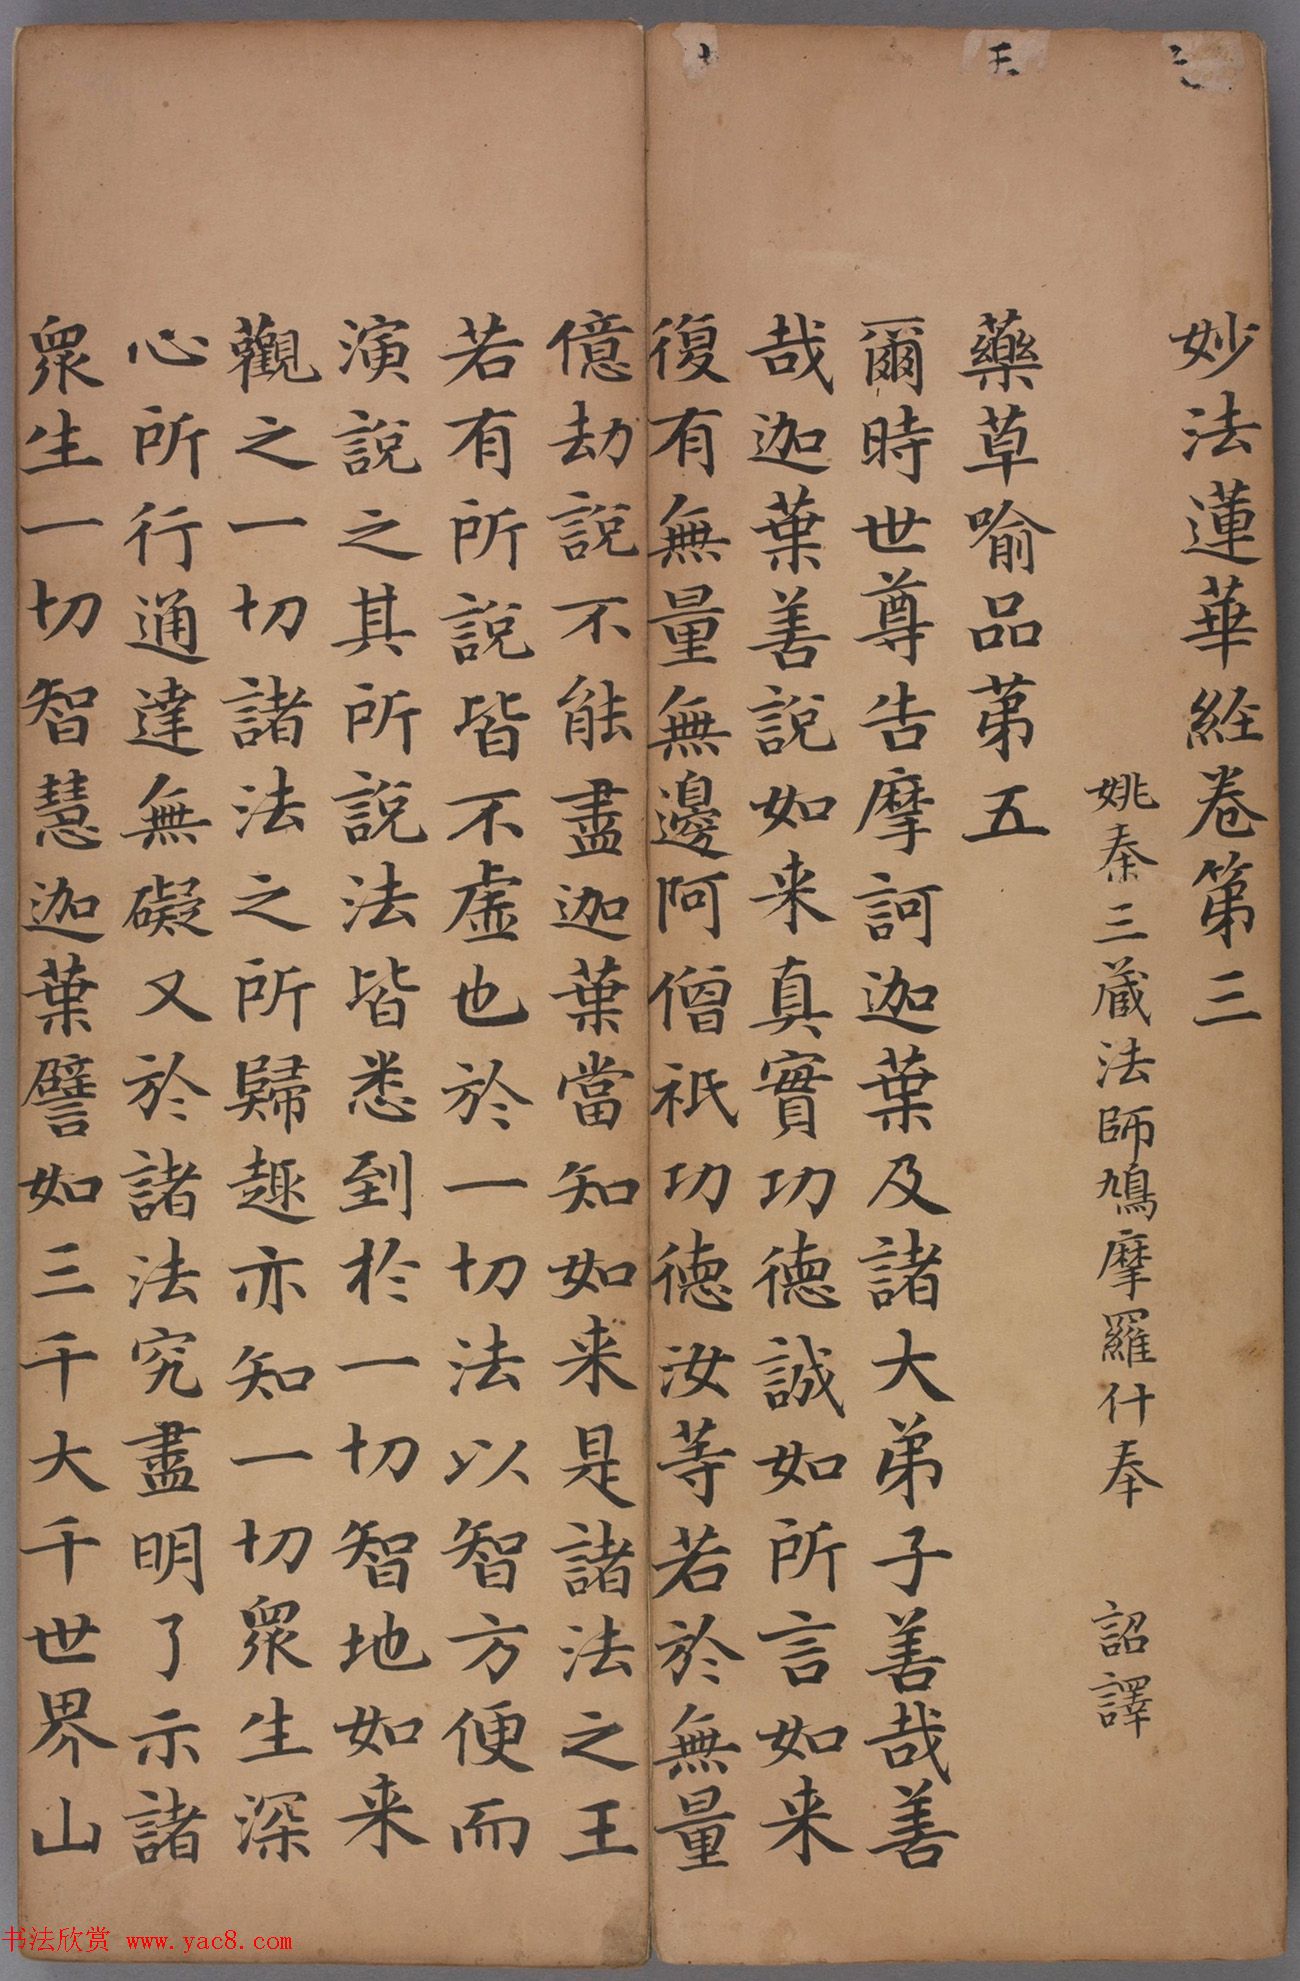 妙法蓮華經卷第三
姚秦三藏法師鳩摩羅什奉 詔譯
藥草喻品第五
爾時世尊告摩訶迦葉及諸大弟子善哉善
哉迦葉善說如来真實功德誠如所言如来
復有無量無邊阿僧祇功德汝等若於無量
億劫說不能盡迦葉當知如来是諸法之王
若有所說皆不虛也於一切法以智方便而
演說之其所說法皆悉到於一切智地如来
觀之一切諸法之所歸趣亦知一切眾生深
心所行通達無礙又於諸法究盡明了示諸
眾生一切智慧迦葉譬如三千大千世界山
书法欣赏 www.yac8.com